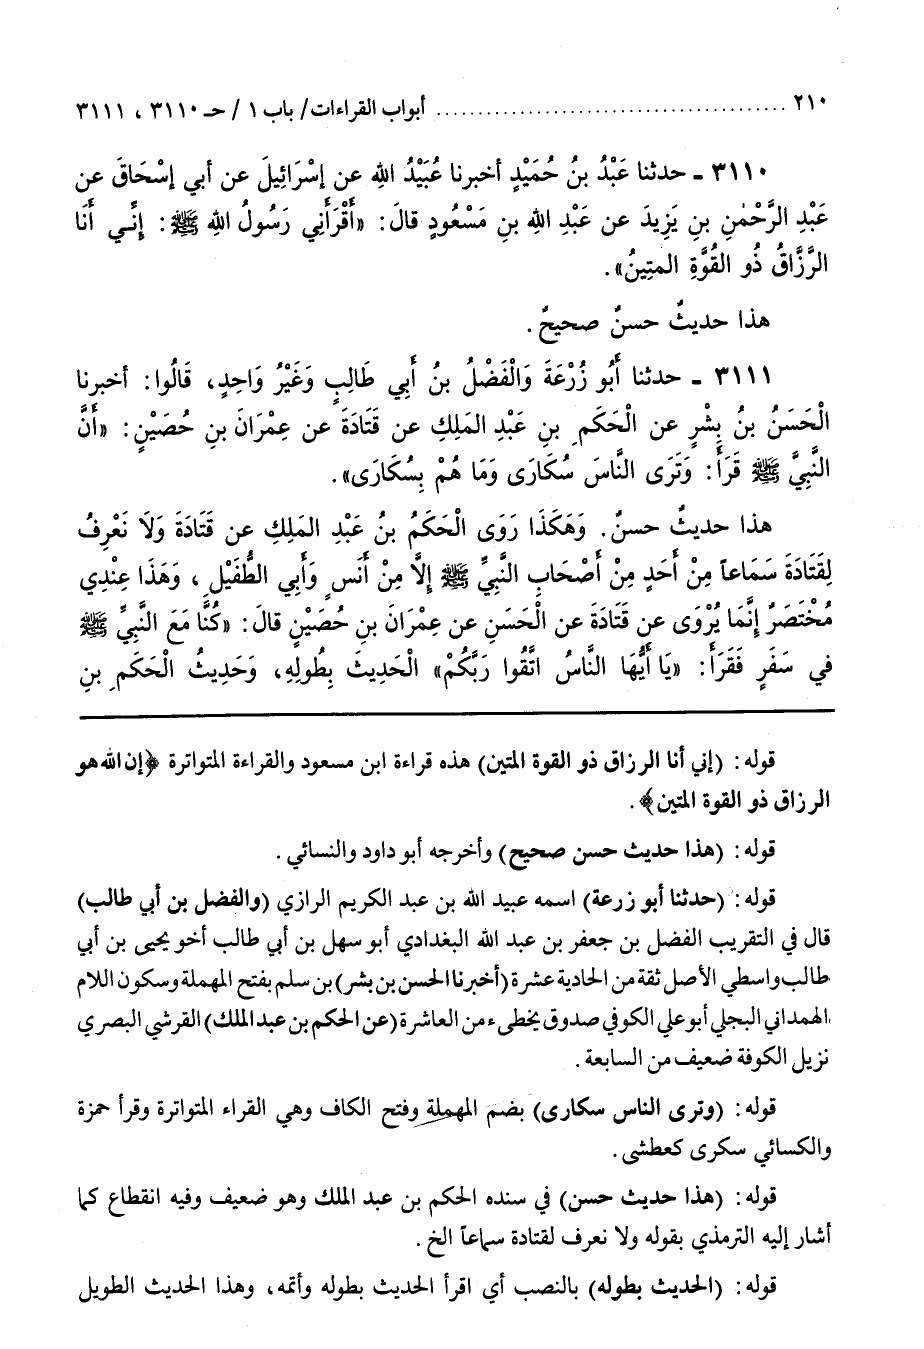 ٢١٠ ........................................ أبواب القراءات/ باب ١ / حـ ٣١١٠ ، ٣١١١
٣١١٠ ـ حدثنا عَبْدُ بنُ حُمَيْدٍ أخبرنا عُبَيْدُ اللهِ عن إسْرَائِيلَ عن أبي إسْحَاقَ عن
عَبْدِ الرَّحْمٰنِ بنِ يَزِيدَ عن عَبْدِ اللهِ بنِ مَسْعُودٍ قالَ: «أَقْرَأَنِي رَسُولُ اللهِ ﷺ: إنَّـي أَنَا
الرَّزَّاقُ ذُو القُوَّةِ المتِينُ».
هذا حديثٌ حسنٌ صحيحٌ.
٣١١١ ـ حدثنا أَبُو زُرْعَةَ وَالْفَضْلُ بنُ أَبِي طَالِبٍ وَغَيْرُ وَاحِدٍ، قَالُوا: أخبرنا
الْحَسَنُ بنُ بِشْرٍ عن الْحَكَمِ بنِ عَبْدِ المَلِكِ عن قَتَادَةَ عن عِمْرَانَ بنِ حُصَيْنٍ: «أَنَّ
النَّبِيَّ ﷺ قَرَأَ: وَتَرَى النَّاسَ سُكَارَى وَمَا هُمْ بِسُكَارَى».
هذا حديثٌ حسنٌ. وَهَكَذَا رَوَى الْحَكَمُ بنُ عَبْدِ المَلِكِ عن قَتَادَةَ وَلَا نَعْرِفُ
لِقَتَادَةَ سَمَاعاً مِنْ أَحَدٍ مِنْ أَصْحَابِ النَّبِيِّ ﷺ إلَّا مِنْ أَنَسٍ وَأَبِي الطُّفَيْلِ، وَهَذَا عِنْدِي
مُخْتَصَرٌ إنَّمَا يُرْوَى عن قَتَادَةَ عن الْحَسَنِ عن عِمْرَانَ بنِ حُصَيْنٍ قالَ: «كُنَّا مَعَ النَّبِيِّ ﷺ
في سَفَرٍ فَقَرَأَ: «يَا أَيُّهَا النَّاسُ اتَّقُوا رَبَّكُمْ» الْحَدِيثَ بِطُولِهِ، وَحَدِيثُ الْحَكَمِ بنِ
قوله: (إني أنا الرزاق ذو القوة المتين) هذه قراءة ابن مسعود والقراءة المتواترة ﴿إن الله هو
الرزاق ذو القوة المتين﴾.
قوله: (هذا حديث حسن صحيح) وأخرجه أبو داود والنسائي.
قوله: (حدثنا أبو زرعة) اسمه عبيد الله بن عبد الكريم الرازي (والفضل بن أبي طالب)
قال في التقريب الفضل بن جعفر بن عبد الله البغدادي أبو سهل بن أبي طالب أخو يحيى بن أبي
طالب واسطي الأصل ثقة من الحادية عشرة (أخبرنا الحسن بن بشر) بن سلم بفتح المهملة وسكون اللام
الهمداني البجلي أبو علي الكوفي صدوق يخطىء من العاشرة (عن الحكم بن عبد الملك) القرشي البصري
نزيل الكوفة ضعيف من السابعة.
قوله: (وترى الناس سكارى) بضم المهملة وفتح الكاف وهي القراء المتواترة وقرأ حمزة
والكسائي سكرى كعطشى.
قوله: (هذا حديث حسن) في سنده الحكم بن عبد الملك وهو ضعيف وفيه انقطاع كما
أشار إليه الترمذي بقوله ولا نعرف لقتادة سماعاً الخ.
قوله: (الحديث بطوله) بالنصب أي اقرأ الحديث بطوله وأتمه، وهذا الحديث الطويل